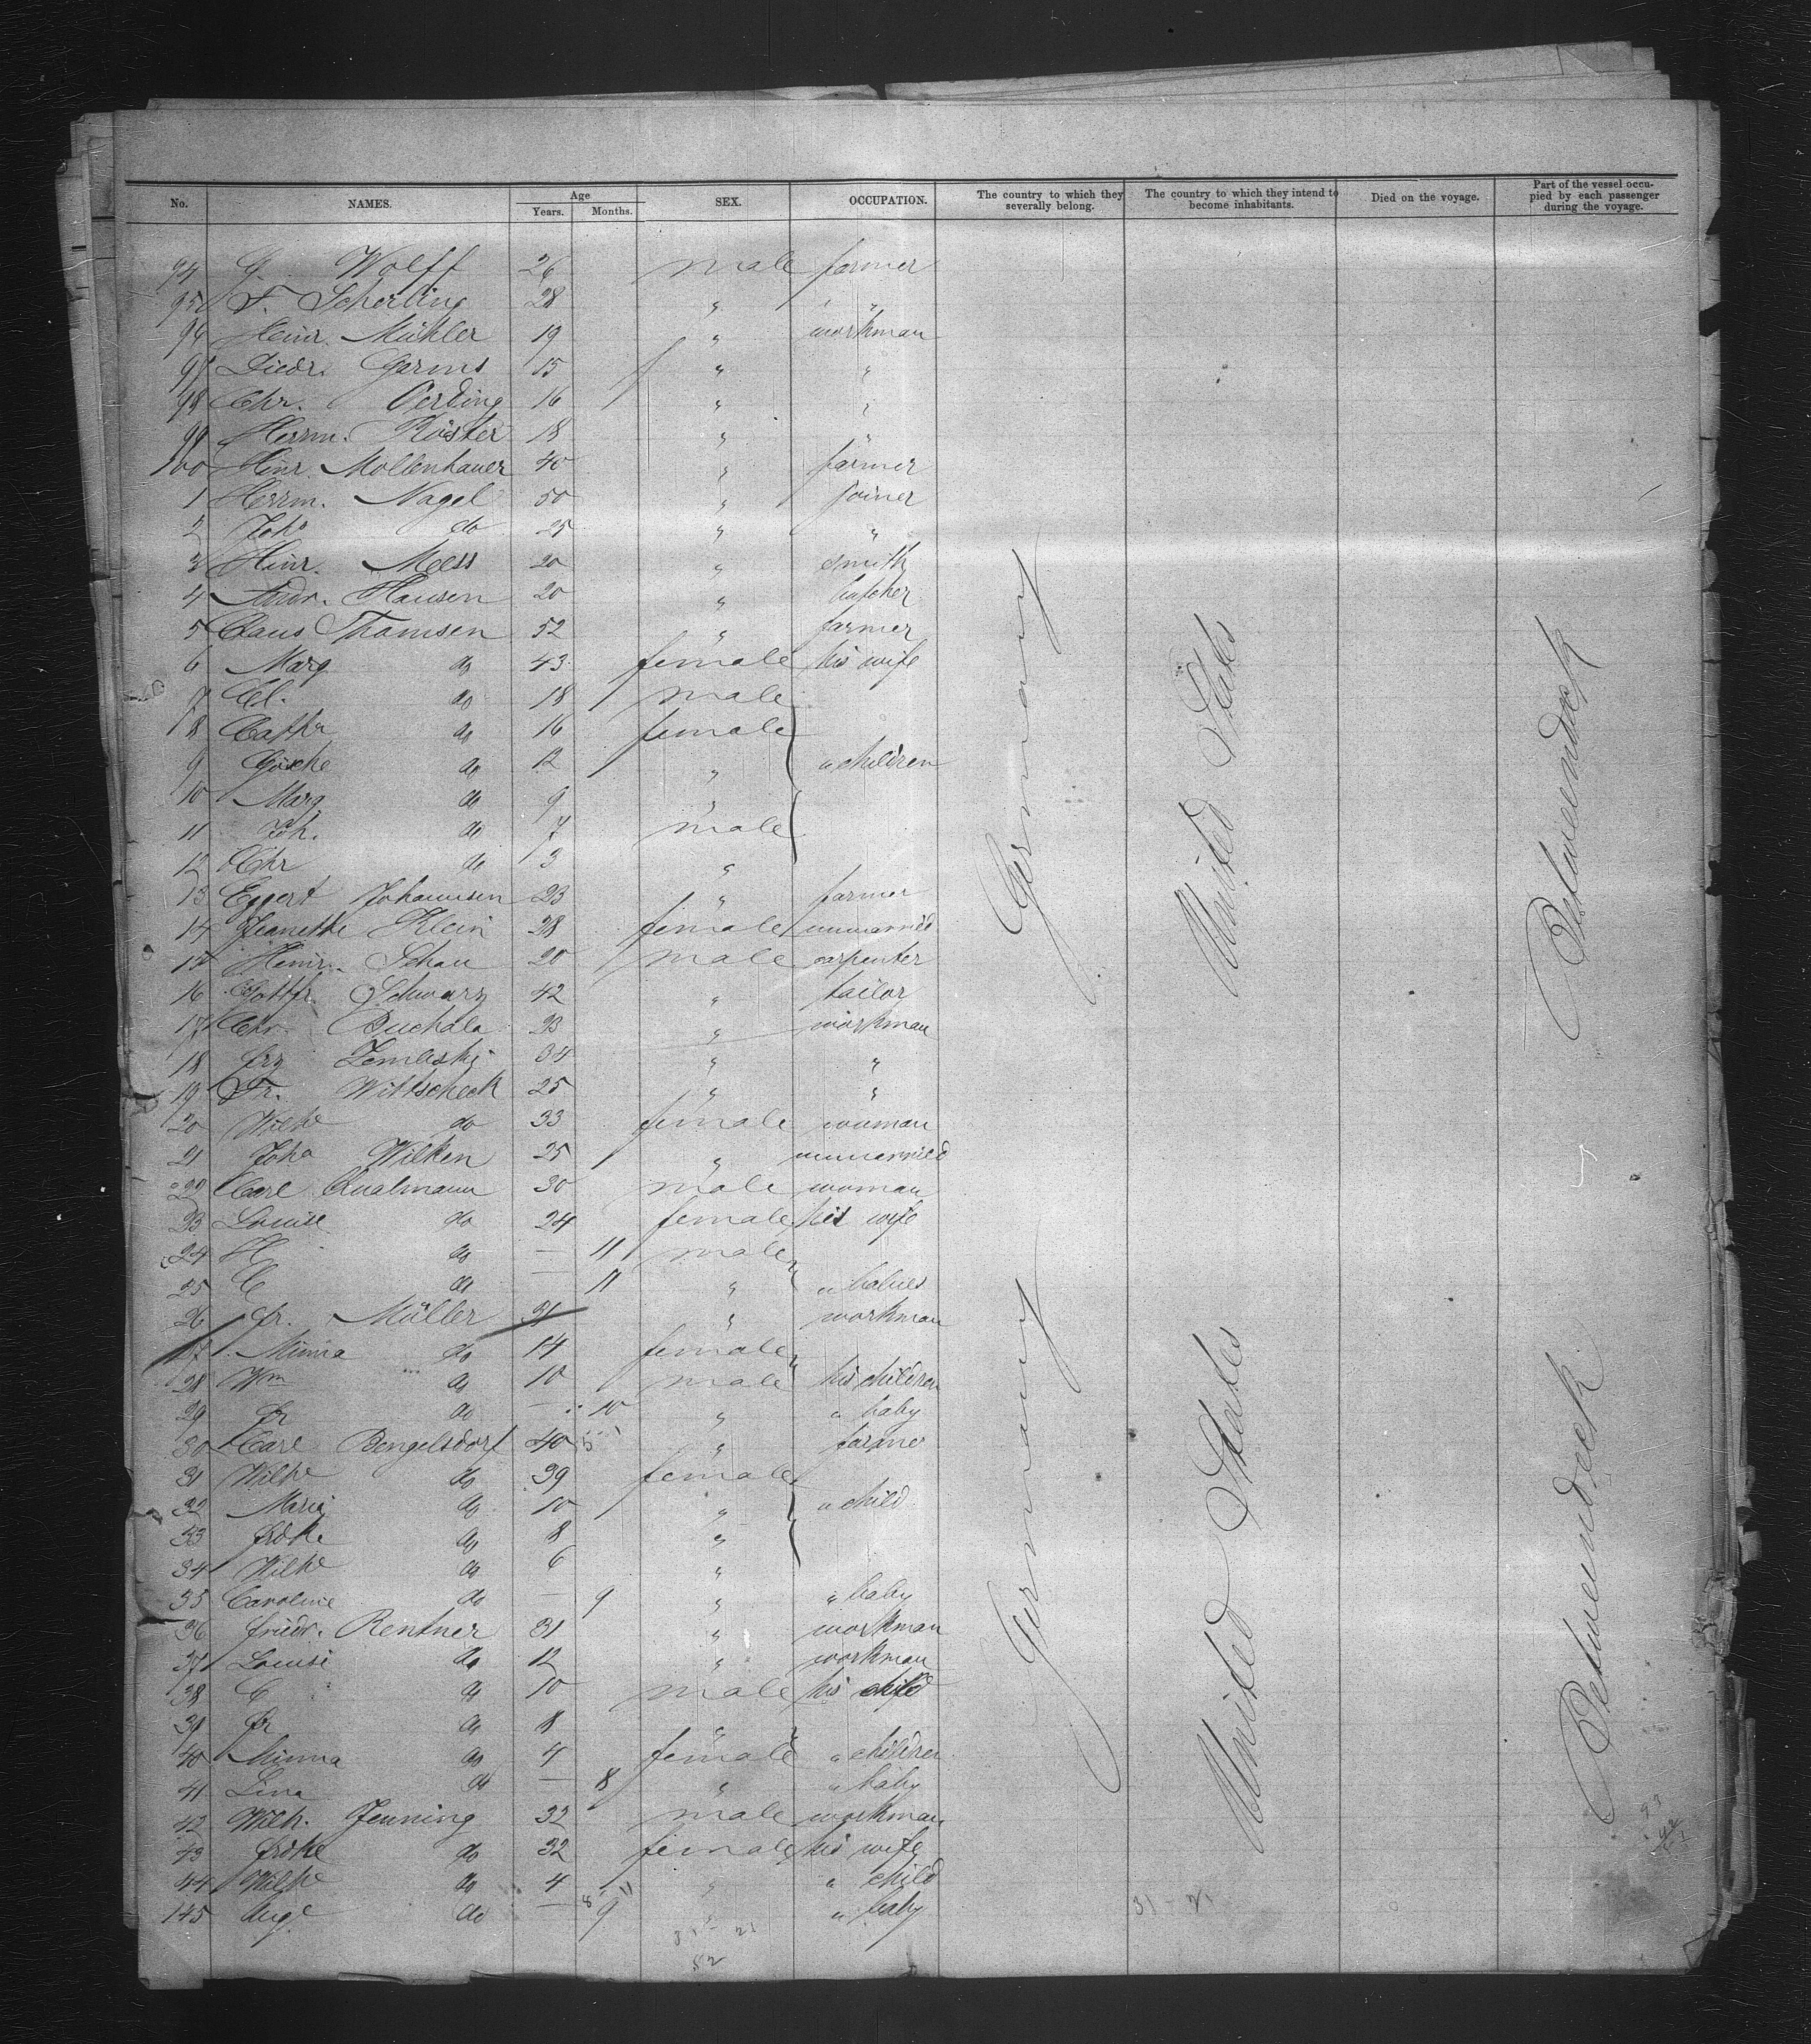 No. NAMES. Age Years. Months. SEX. OCCUPATION. The country to which they severally belong. The country to which they intend to become inhabitants. Died on the voyage. Part of the vessel occupied by each passenger during the voyage.
94 G. Wolff 26 male farmer
95 F. Scherling 28 " "
96 Heinr. Mükhler 19 " workman
97 Diedr. Garms 15 " "
98 Chr. Oerding 16 " "
99 Herrm. Köster 18 " "
100 Hinr. Mollenhauer 40 " farmer
1 Herrm. Nagel 50 " joiner
2 Joh do 25 " "
3 Hinr. Mess 20 " smith
4 Andr. Hansen 20 " butcher
5 Claus Thomsen 52 " farmer
6 Marg do 43 female his wife
7 Cl. do 18 male
8 Cathr do 16 female
9 Gösche do 12 " " children
10 Marg do 9 "
11 Joh. do 7 male
12 Chr do 3 "
13 Eggert Johannsen 23 " farmer
14 Jeanette Klein 28 female unmarried
15 Heinr. Schau 20 male carpenter
16 Gottfr. Schwarz 42 " tailor
17 Chr. Buchala 23 " workman
18 Frz Zemleski 34 " "
19 Fr. Wittscheck 25 " "
20 Wilhe do 33 female woman
21 Joha Wilken 25 " unmarried
22 Carl Qualmann 30 male woman
23 Louise do 24 female his wife
24 H do — 11 male
25 C do — 11 " " babies
26 Fr. Müller 31 " workman
27 Minna do 14 female
28 Wm do 10 male his children
29 Fr do — 10 " " baby
30 Carl Bengelsdorf 40 " farmer
31 Wilhe do 39 female
32 Marie do 10 " " child
33 Frdke do 8 "
34 Wilhe do 6 "
35 Caroline do — 9 " " baby
36 Friedr. Rentner 31 " workman
37 Louise do 12 " workman
38 C do 10 male his child
39 Fr do 8 "
40 Minna do 4 female " children
41 Lina do — 8 " " baby
42 Wilh. Jenning 32 male workman
43 Frdke do 32 female his wife
44 Wilhe do 4 " " child
145 Auge do — 9 " " baby
Germany United States Betweendeck
Germany United States Betweendeck